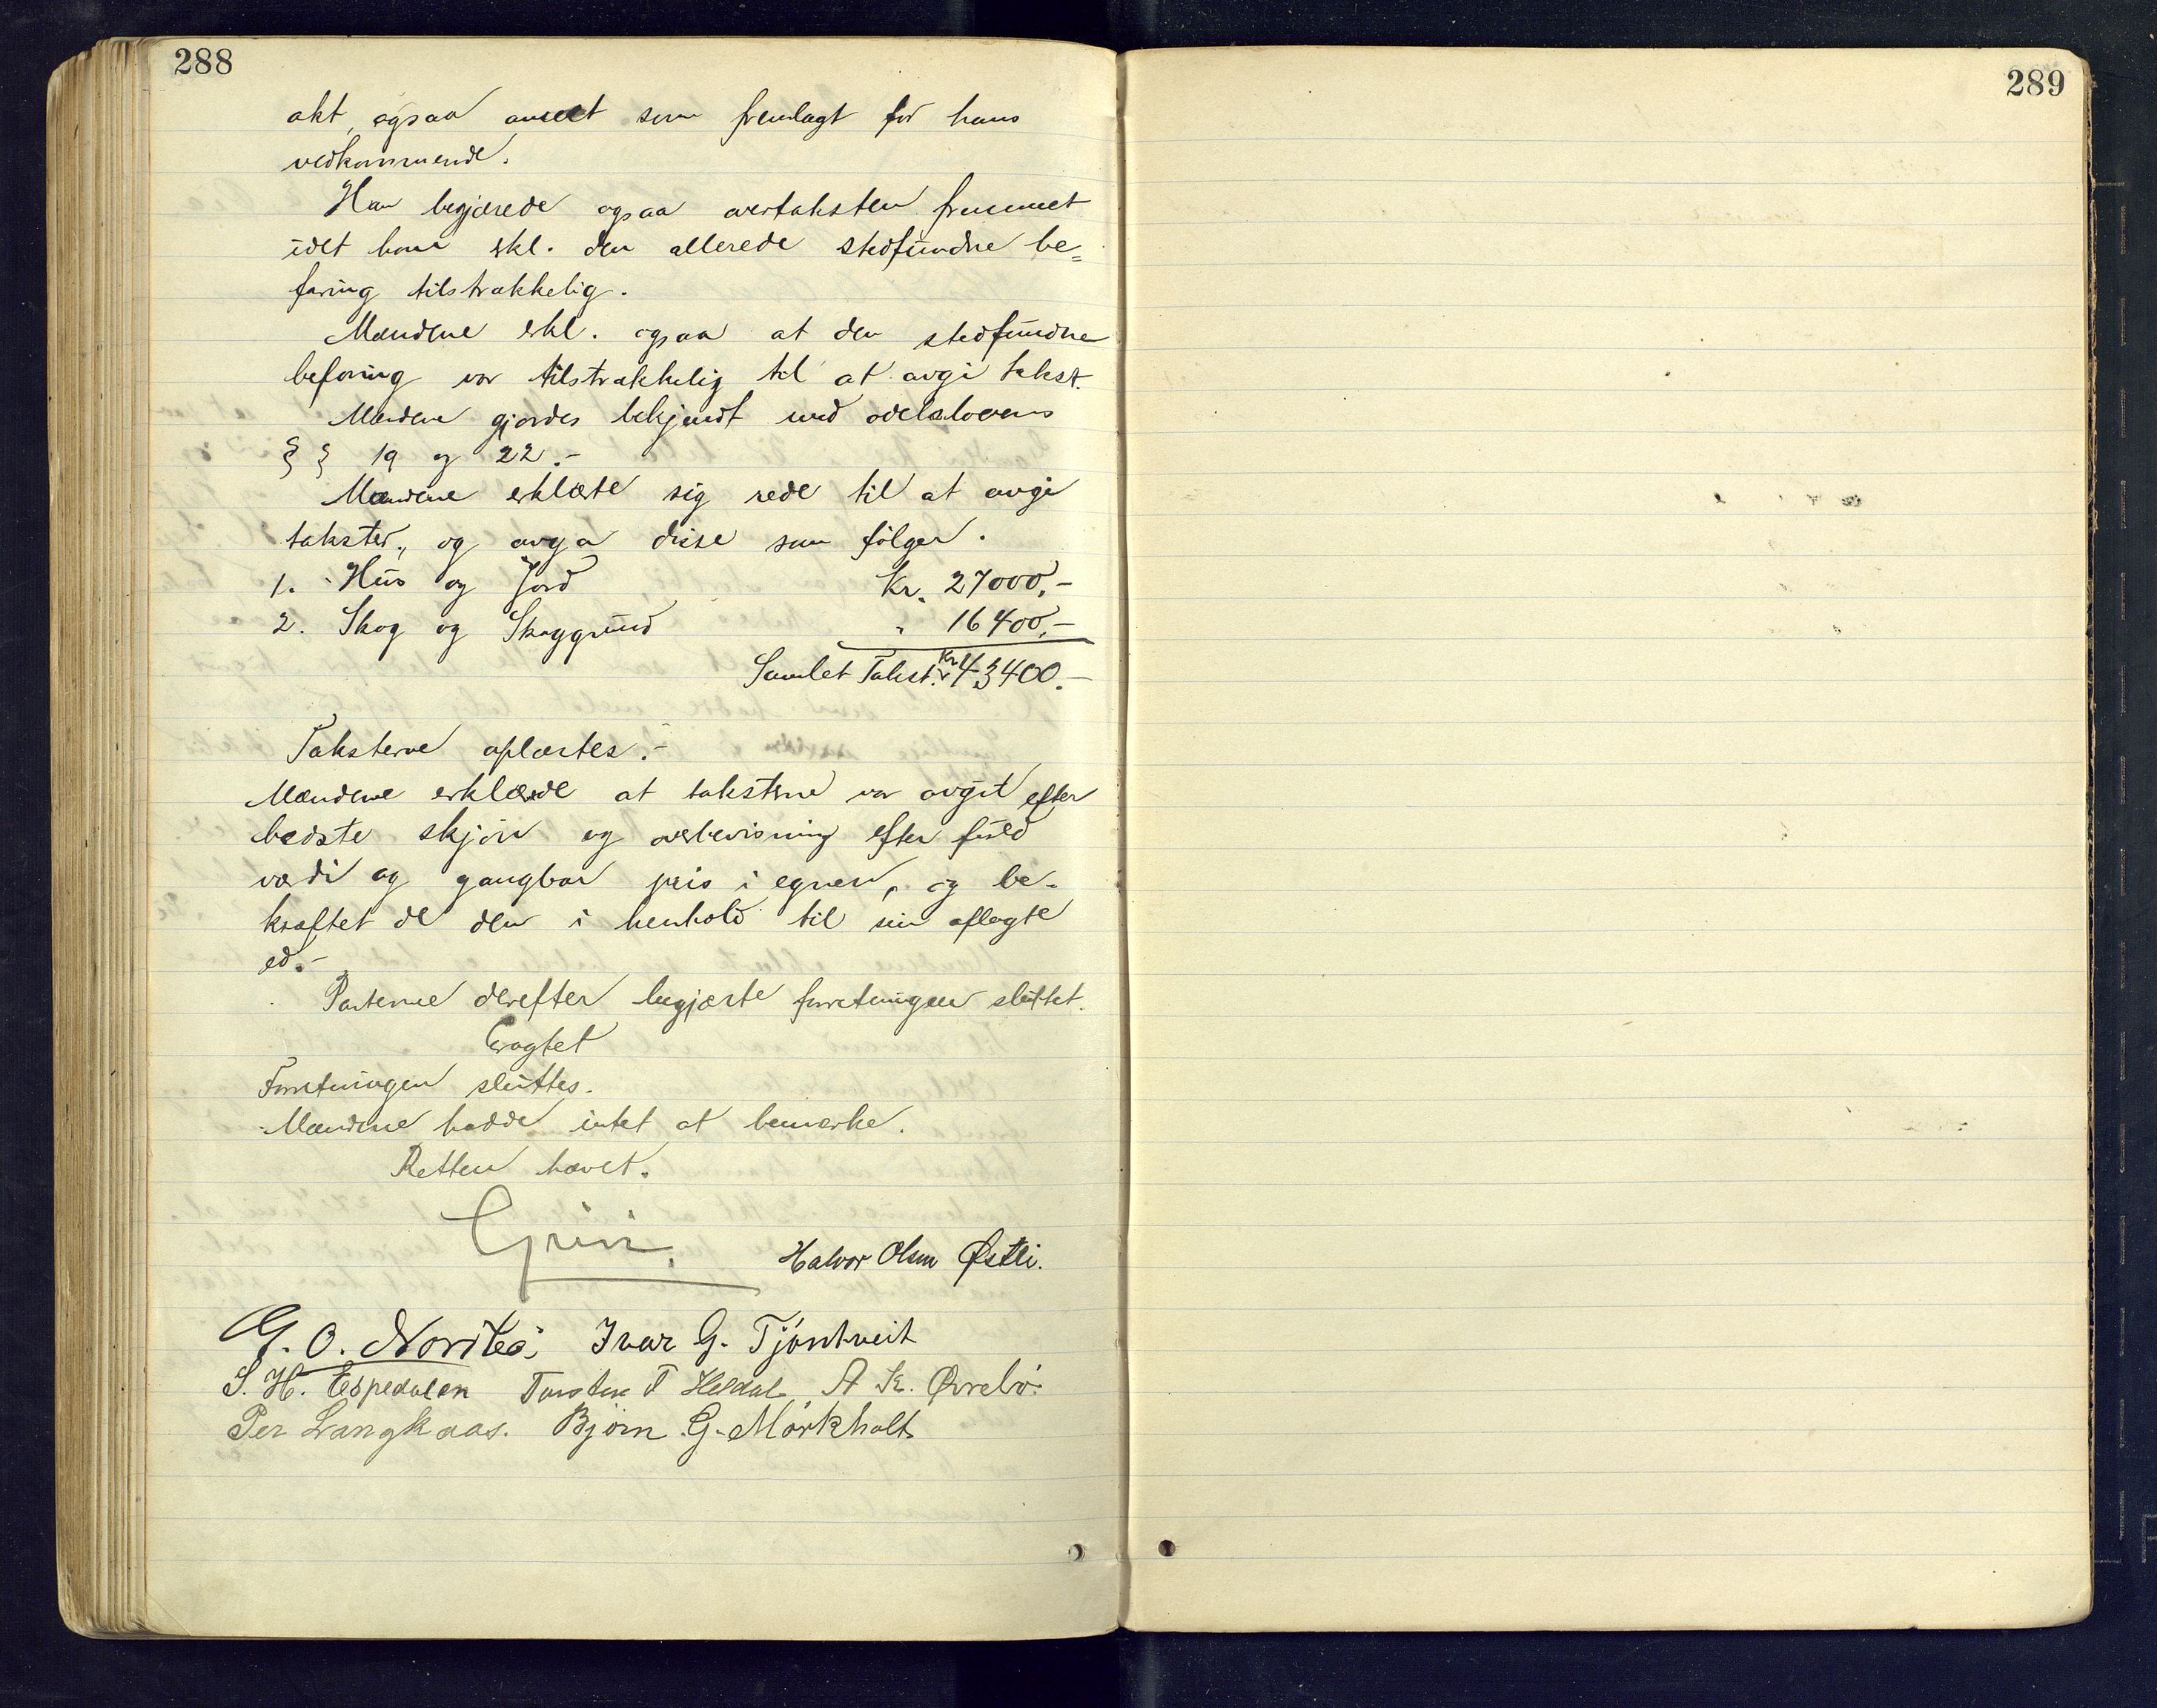 288
akt, ogsaa anseet som fremlagt for hans
vedkommende.
Han begjærede ogsaa overtaksten fremmet
idet han erkl. den allerede stedfundne be=
faring tilstrækkelig.
Mændene erkl. ogsaa at den stedfundne
befaring var tilstrækkelig til at avgi takst.
Mændene gjordes bekjendt med odelslovens
§ § 19 og 22.-
Mændene erklærte sig rede til at avgi
takster, og avga disse som følger.
1. Hus og Jord Kr. 27000.-
2. Skog og Skoggrund " 16400.-
Samlet Takst. Kr 43400.-
Taksterne oplæstes.-
Mændene erklærede at taksterne var avgit efter
bedste skjøn og overbevisning efter fuld
værdi og gangbar pris i egnen, og be-
kræftet de den i henhold til sin aflagte
ed.-
Parterne derefter begjærte forretningen sluttet.
Eragtet
Forretningen sluttes.
Mændene hadde intet at bemærke.
Retten hævet.
Halvor Olsen Østli.
G. O. Ivar G. Tjøntveit
S. H. Espedalen T Heldal A K. Øvrebö.
Per Langkaas. Bjørn G. Mörkholt
289